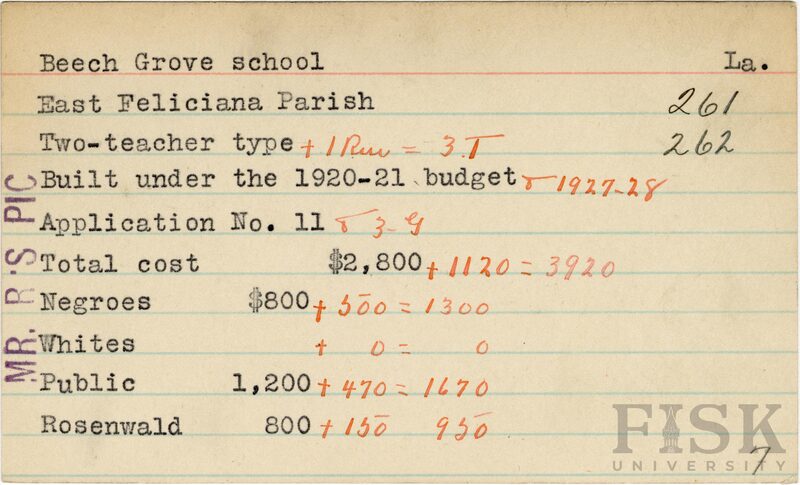 Beech Grove school La.
East Feliciana Parish 261
Two-teacher type + 1 Rm = 3.T 262
Built under the 1920-21 budget & 1927-28
Application No. 11 & 3-G
Total cost $2,800 + 1120 = 3920
Negroes $800 + 500 = 1300
Whites + 0 = 0
Public 1,200 + 470 = 1670
Rosenwald 800 + 150 950
MR. R'S PIC
FISK
UNIVERSITY
7